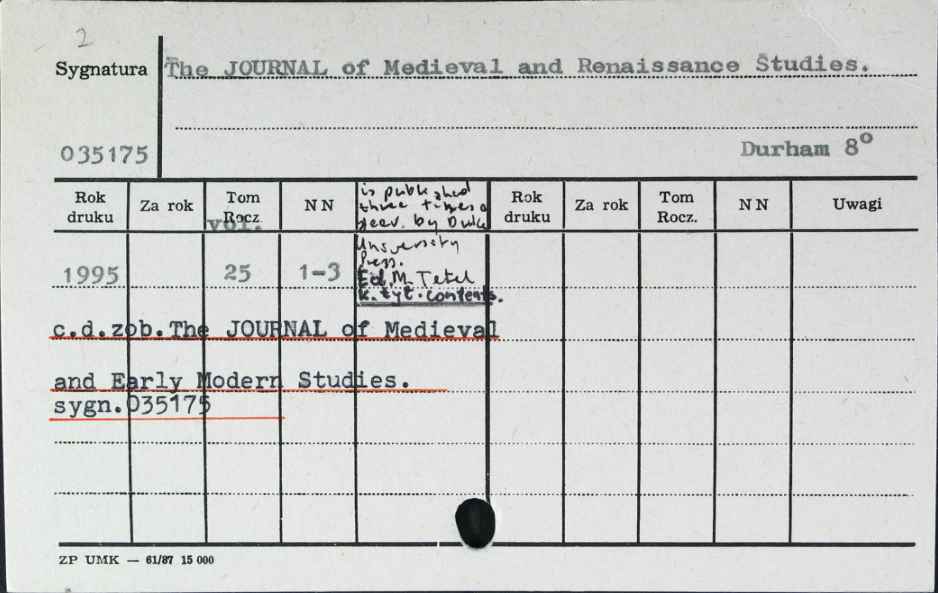 2
Sygnatura The JOURNAL of Medieval and Renaissance Studies.
035175 Durham 8°
Rok druku Za rok Tom Rocz. NN Rok druku Za rok Tom Rocz. NN Uwagi
vol.
is published
three times a
year by Duke
University
Press.
Ed. M. Tetel
k.tyt.contents.
1995 25 1-3
c.d.zob.The JOURNAL of Medieval
and Early Modern Studies.
sygn.035175
ZP UMK — 61/87 15 000